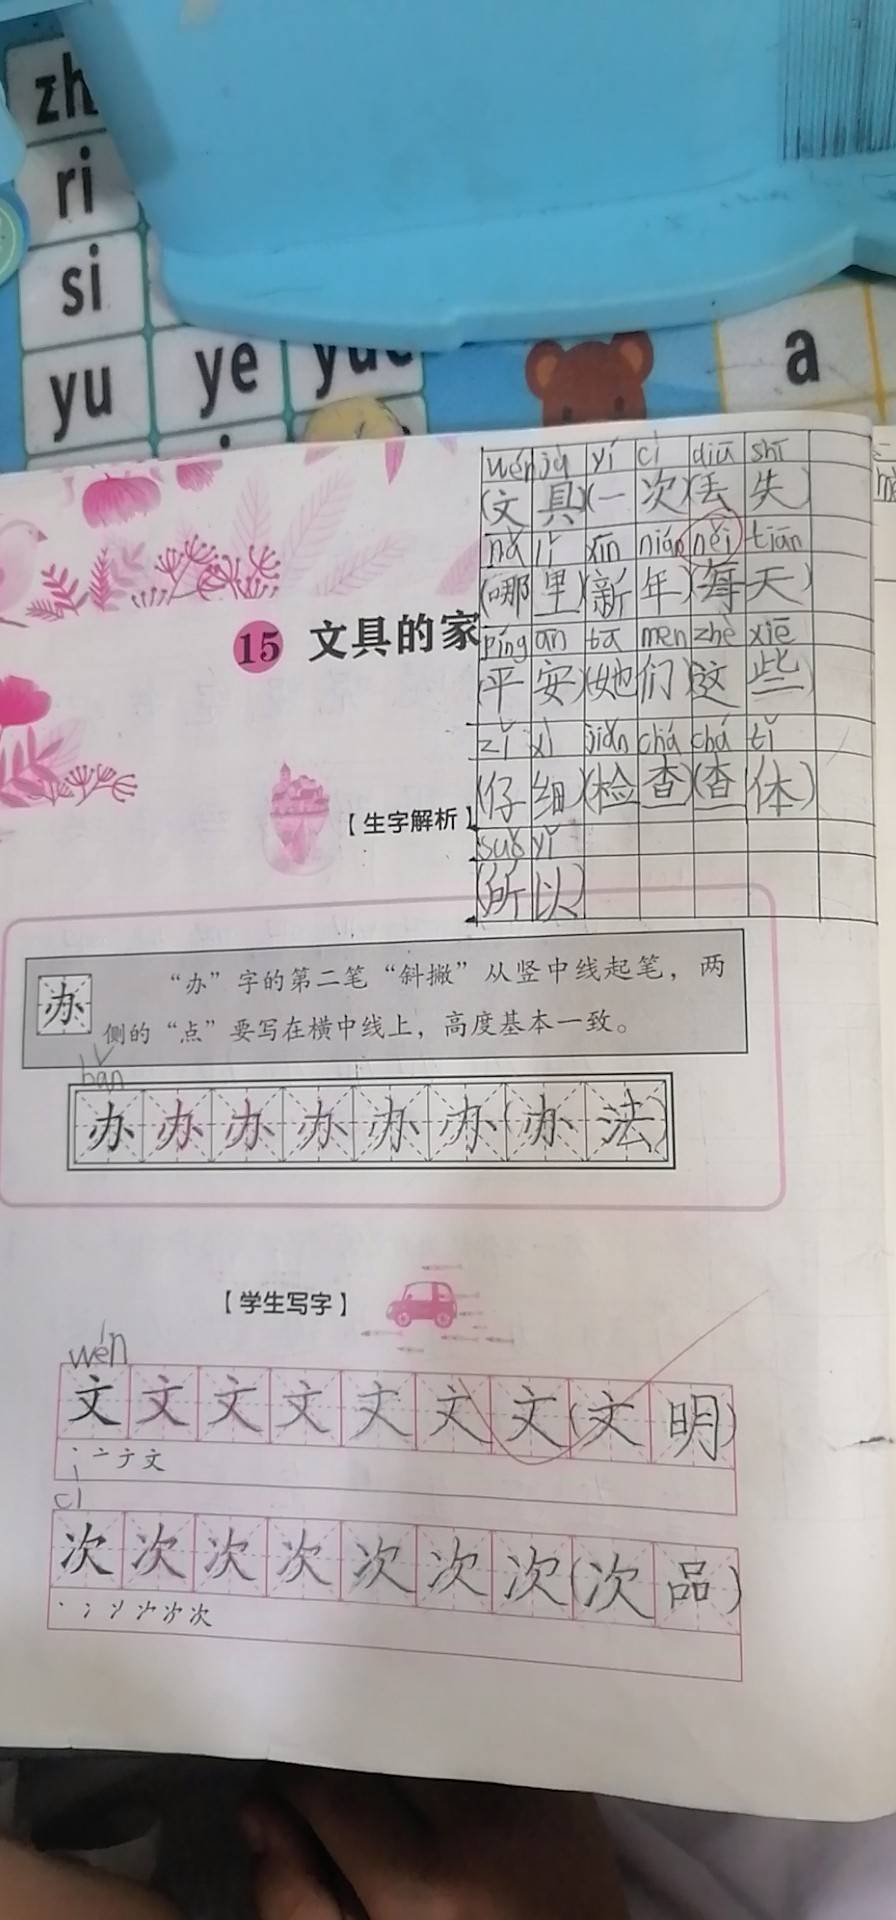 zh
ri
si
yu ye yue
a
wén jù yí cì diū shī
(文具)(一次)(丢失)
nǎ lǐ xīn nián něi tiān
(哪里)(新年)(每天)
píng ān tā men zhè xiē
(平安)(她们)(这些)
zǐ xì jiǎn chá chá tǐ
(仔细)(检查)(查体)
suǒ yǐ
(所以)
15 文具的家
【生字解析】
办 “办”字的第二笔“斜撇”从竖中线起笔，两
侧的“点”要写在横中线上，高度基本一致。
bàn
办办办办办办(办法)
【学生写字】
wén
文文文文文文文(文明)
丶亠亣文
cì
次次次次次次次(次品)